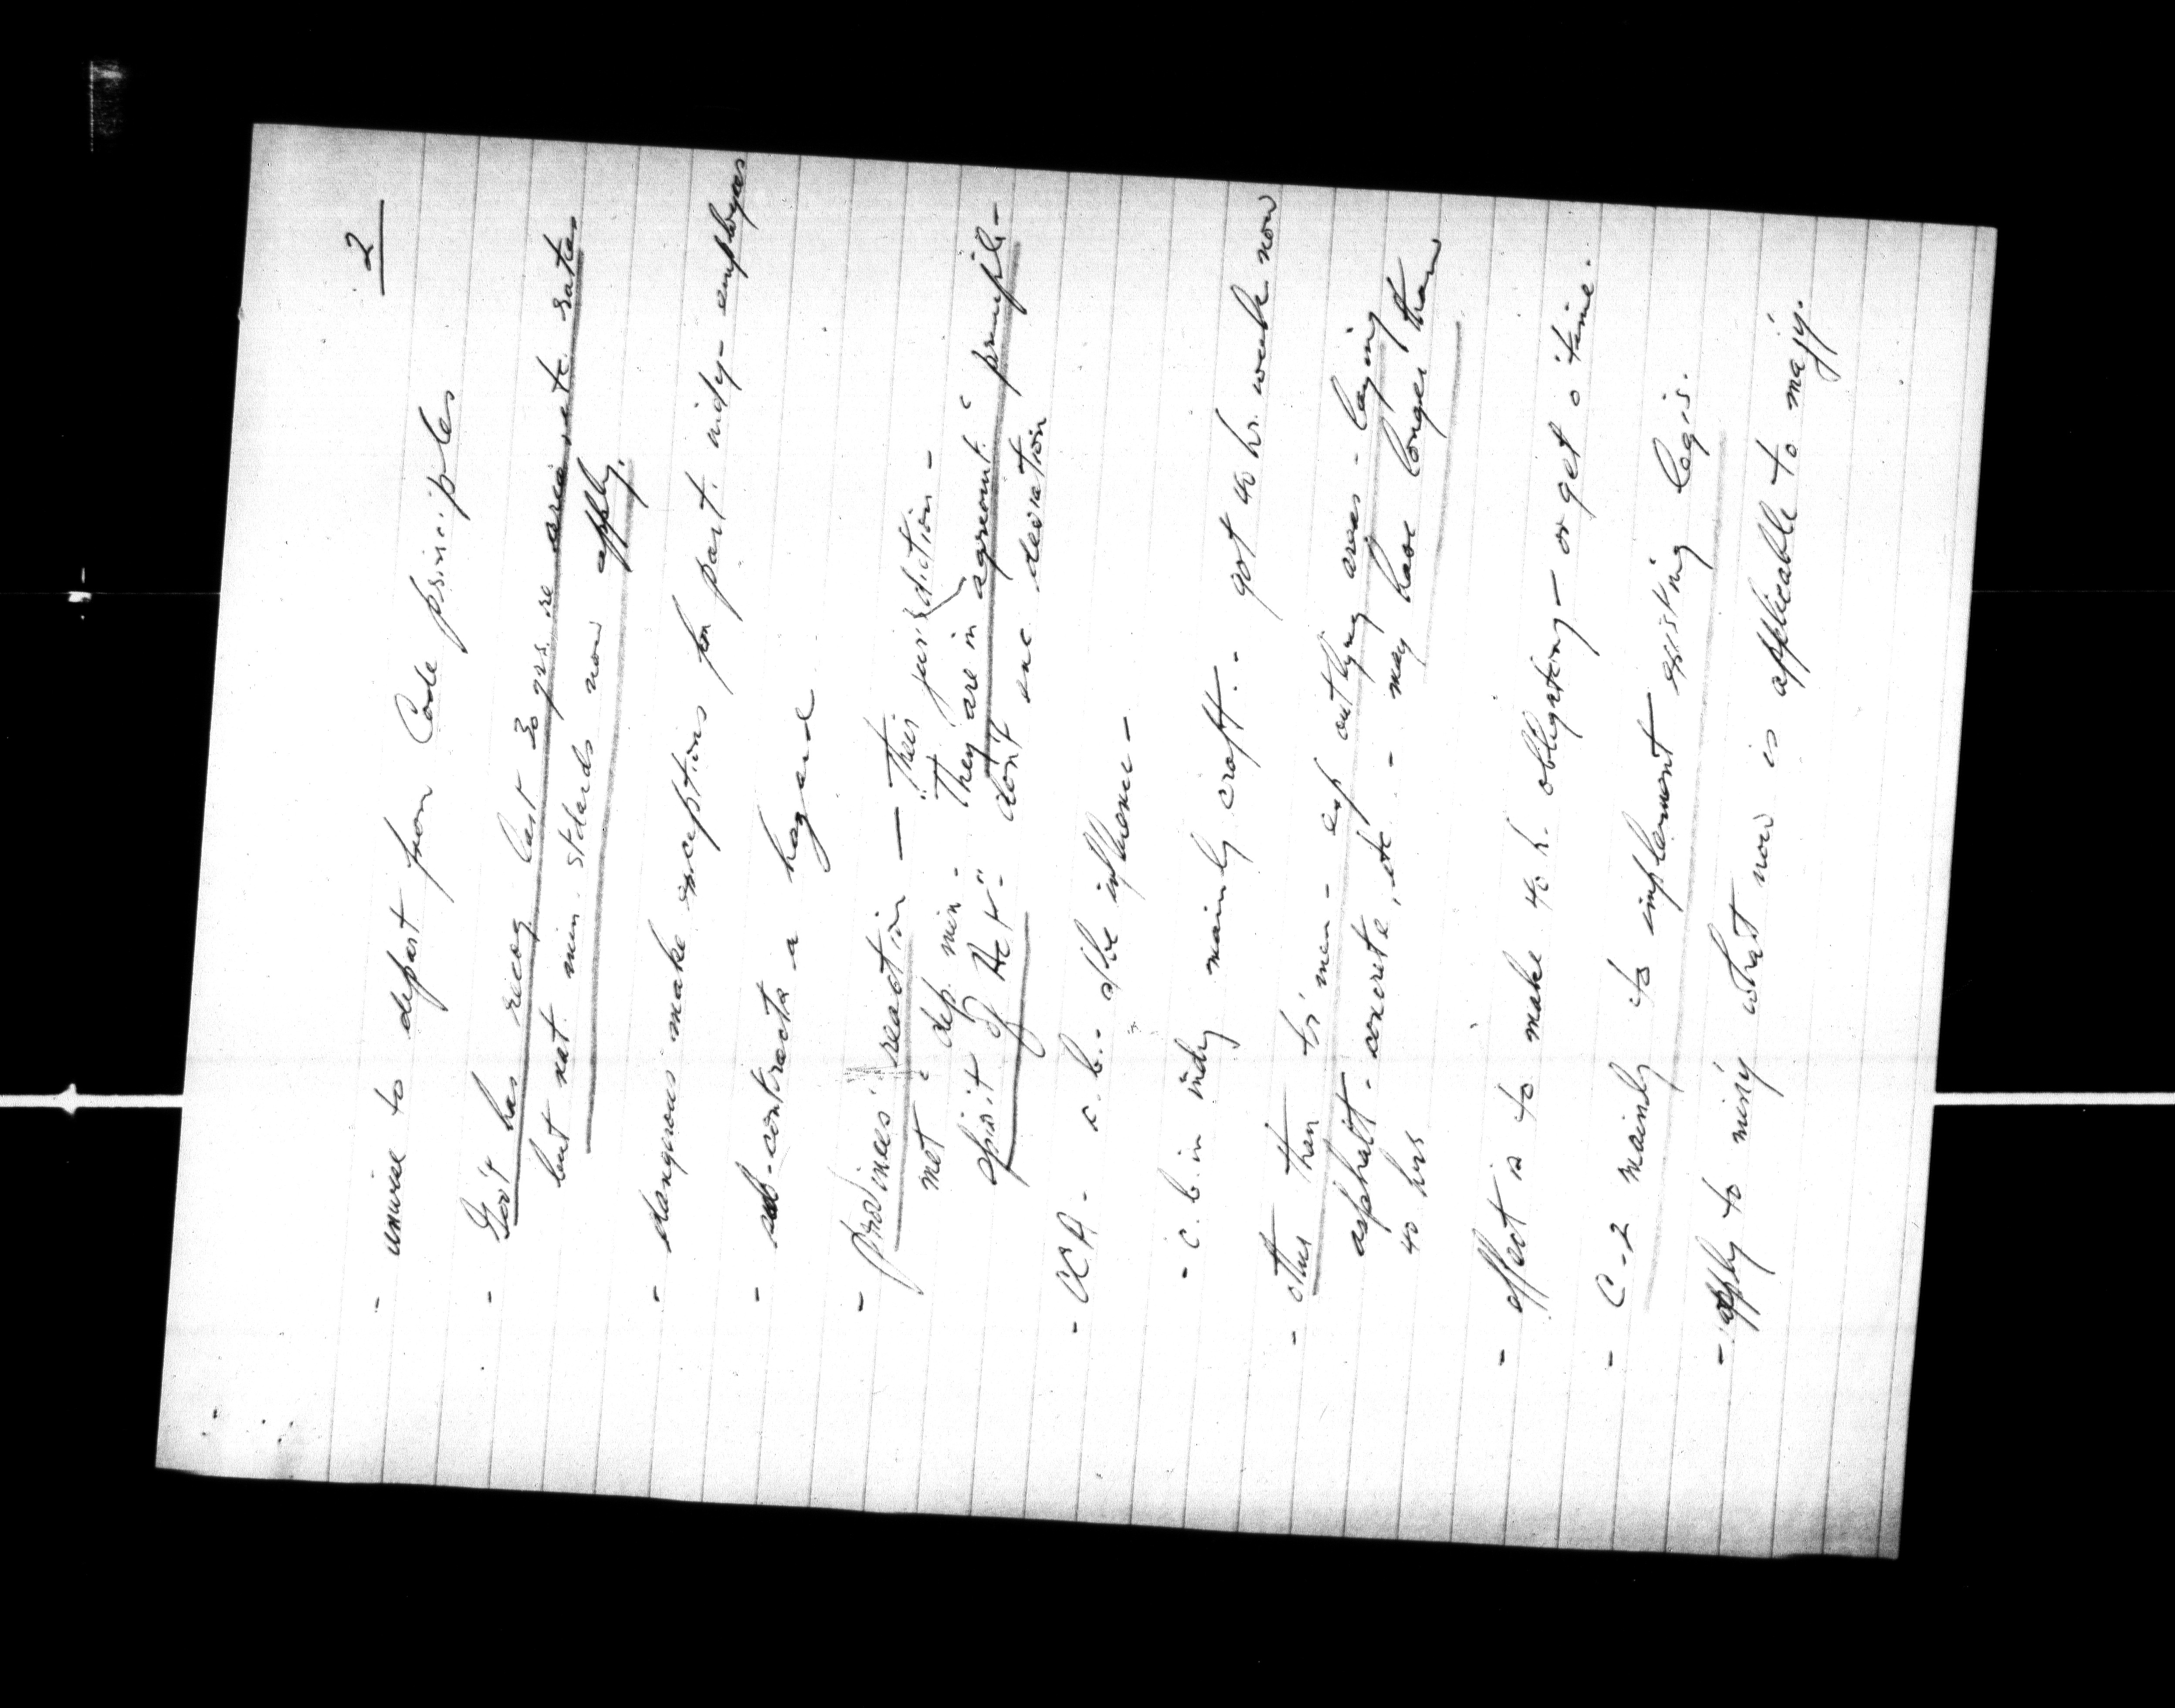 2
- unwise to depart from Code principles
- Gov't has recog last 30 yrs. re area rate rates
but nat. min. stdards now apply.
- dangerous make exceptions for part. indy - employees
- sub-contracts a hazard
- provinces' reaction — "Their jurisdiction -
met c dep. min. - They are in agreement c principle -
spirit of Act" - don't enc deviation
- CCA - c.b. - influence -
- c.b. in indy mainly craft. - got 40 hr. week now
- other than tr' men - esp outlying areas - laying
asphalt - concrete, etc - may have longer than
40 hrs
- effect is to make 40 h. obligatory - or get o'time.
- C-2 mainly to implement existing legis.
- apply to min'y what now is applicable to maj'y.